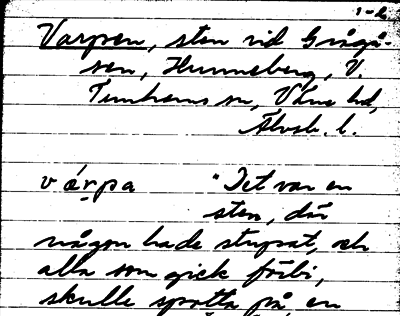 1-2
Varpen, sten vid Grågå-
sen, Hunneberg, V.
Tunhems sn, Väne hd,
Älvsb. l.
várpa "Det var en
sten, där
någon hade stupat, och
alla som gick förbi,
skulle spotta på en